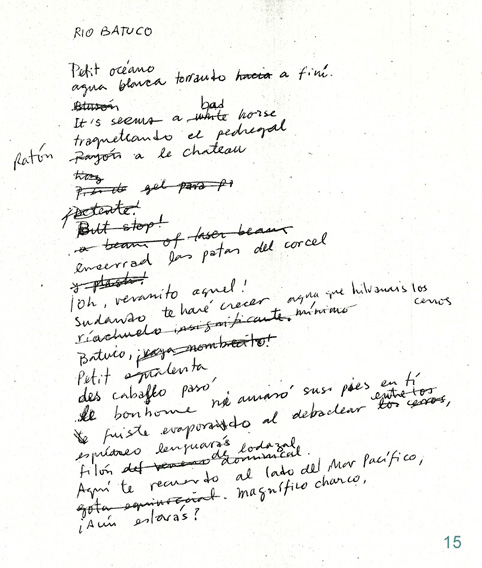 RIO BATUCO
Petit océano
agua blanca torrando hacia a fini.
It's seems a white bad horse
traqueteando el pedregal
Ratón Rayón a le chateau
hay
gel para
¡Detente!
But stop!
a beam of laser beam
encerrad las patas del corcel
y plash!
¡Oh, veranito aquel!
sudando te haré crecer agua que hilvanais los cerros
riachuelo insignificante. mínimo
Batuco, ¡vaya nombrecito!
Petit agualenta
des caballo pasó
le bonhome ni amarró sus pies en tí
te fuiste evaporando al debaclear entre los los cerros,
espúreo lenguarás
filón del veneno de lodazal dominical.
Aquí te recuerdo al lado del Mar Pacífico,
gota equinoccial. magnífico charco,
¿Aún estarás?
15